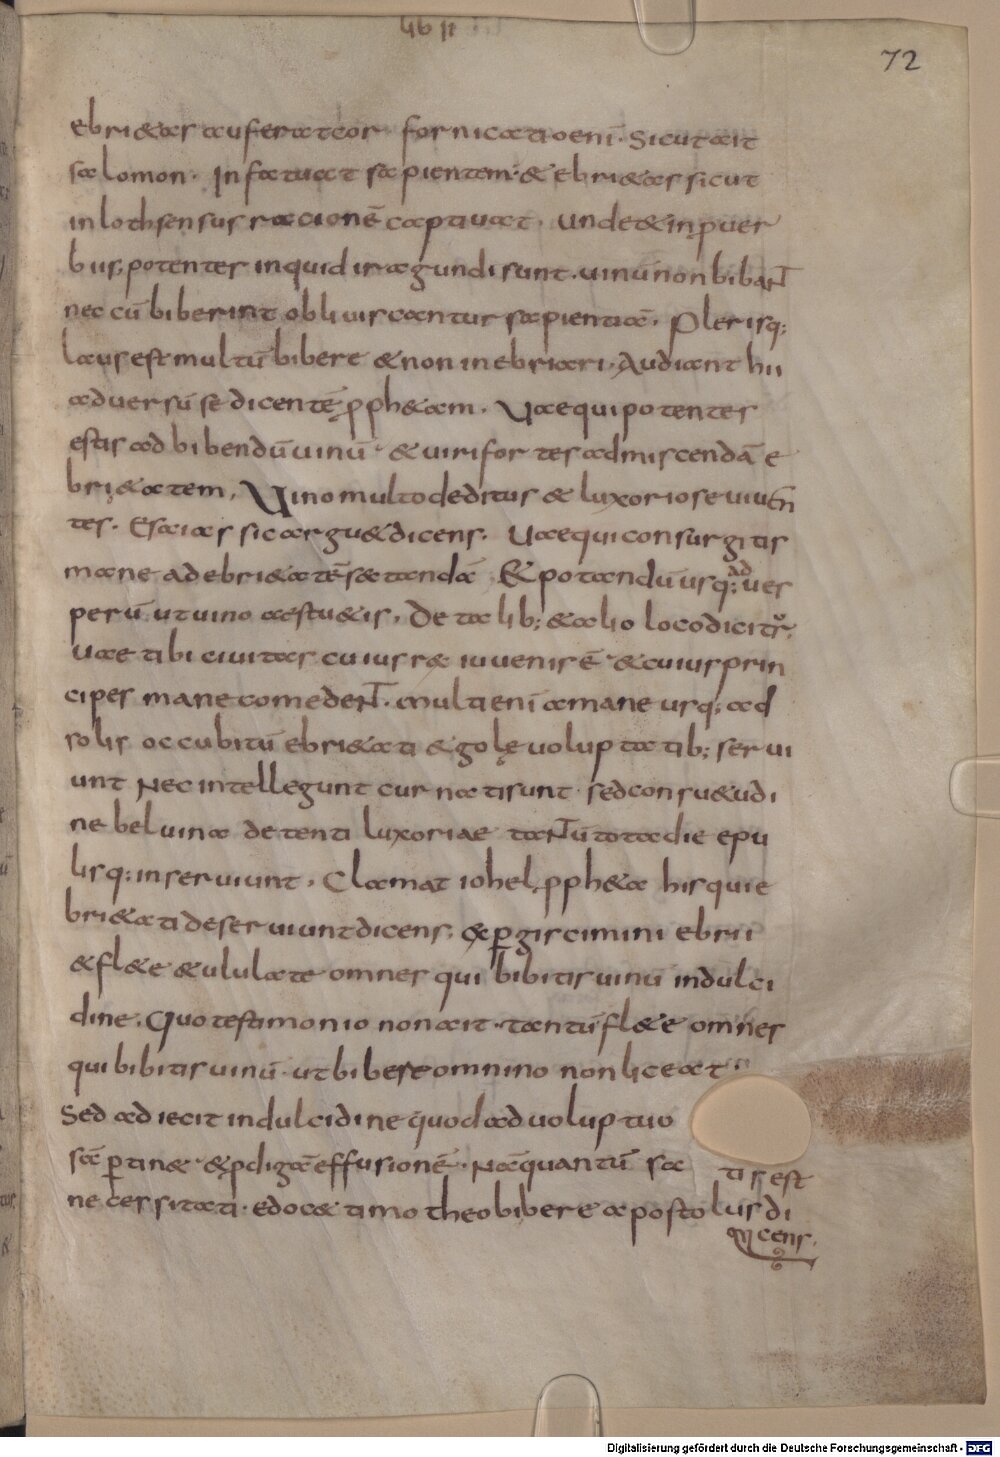 lib ii
72
ebri&as auferat cor · fornicatio enī · Sicut ait
salomon · Infatuat sapientem · & ebri&as sicut
in loth sensus racionē captiuat · unde & in puer
biis; potentes inquid iragundi sunt · uinū non bibaNT
nec cū biberint obliuiscantur sapientiā · Plerisq;
laus est multū bibere & non inebriari · Audiant hii
aduersū se dicentē ꝓph&am · Uae qui potentes
estis ad bibendū uinū · & uiri fortes ad miscendā e
bri&atem, Uino multo deditus & luxoriose uiuen
tes · Esaias sic argu& dicens · Uae qui consurgitis
mane ad ebri&atē sectandā · Et potandū usq; ad ues
perū ut uino aestu&is, De talib; & alio loco dicit᷑
uae tibi ciuitas cuius ræ iuuenis ē · & cuius prin
cipes mane comedeNT · multi enī a mane usq; ad
solis occubitū ebri&ati & golę uoluptatib; serui
unt Nec intellegunt cur nati sunt · sed consu&udi
ne beluina detenti luxoriae taNTū tota die epu
lisq; inseruiunt · Clamat iohel ꝓph&a his qui e
bri&ati deseruiunt dicens, expꝑgiscimini ebrii
& fl&e & ululate omnes qui bibitis uinū in dulci
dine · Quo testimonio non ait · tantū fl&e omnes
qui bibitis uinū · ut bibere omnino non liceat
Sed adiecit in dulcidine quod ad uoluptuo
sā ꝑtin& · & ꝓdigā effusionē · Nā quantū sa tis est
necessitati · edoc& timotheo bibere apostolus di
cens,
Digitalisierung gefördert durch die Deutsche Forschungsgemeinschaft - DFG